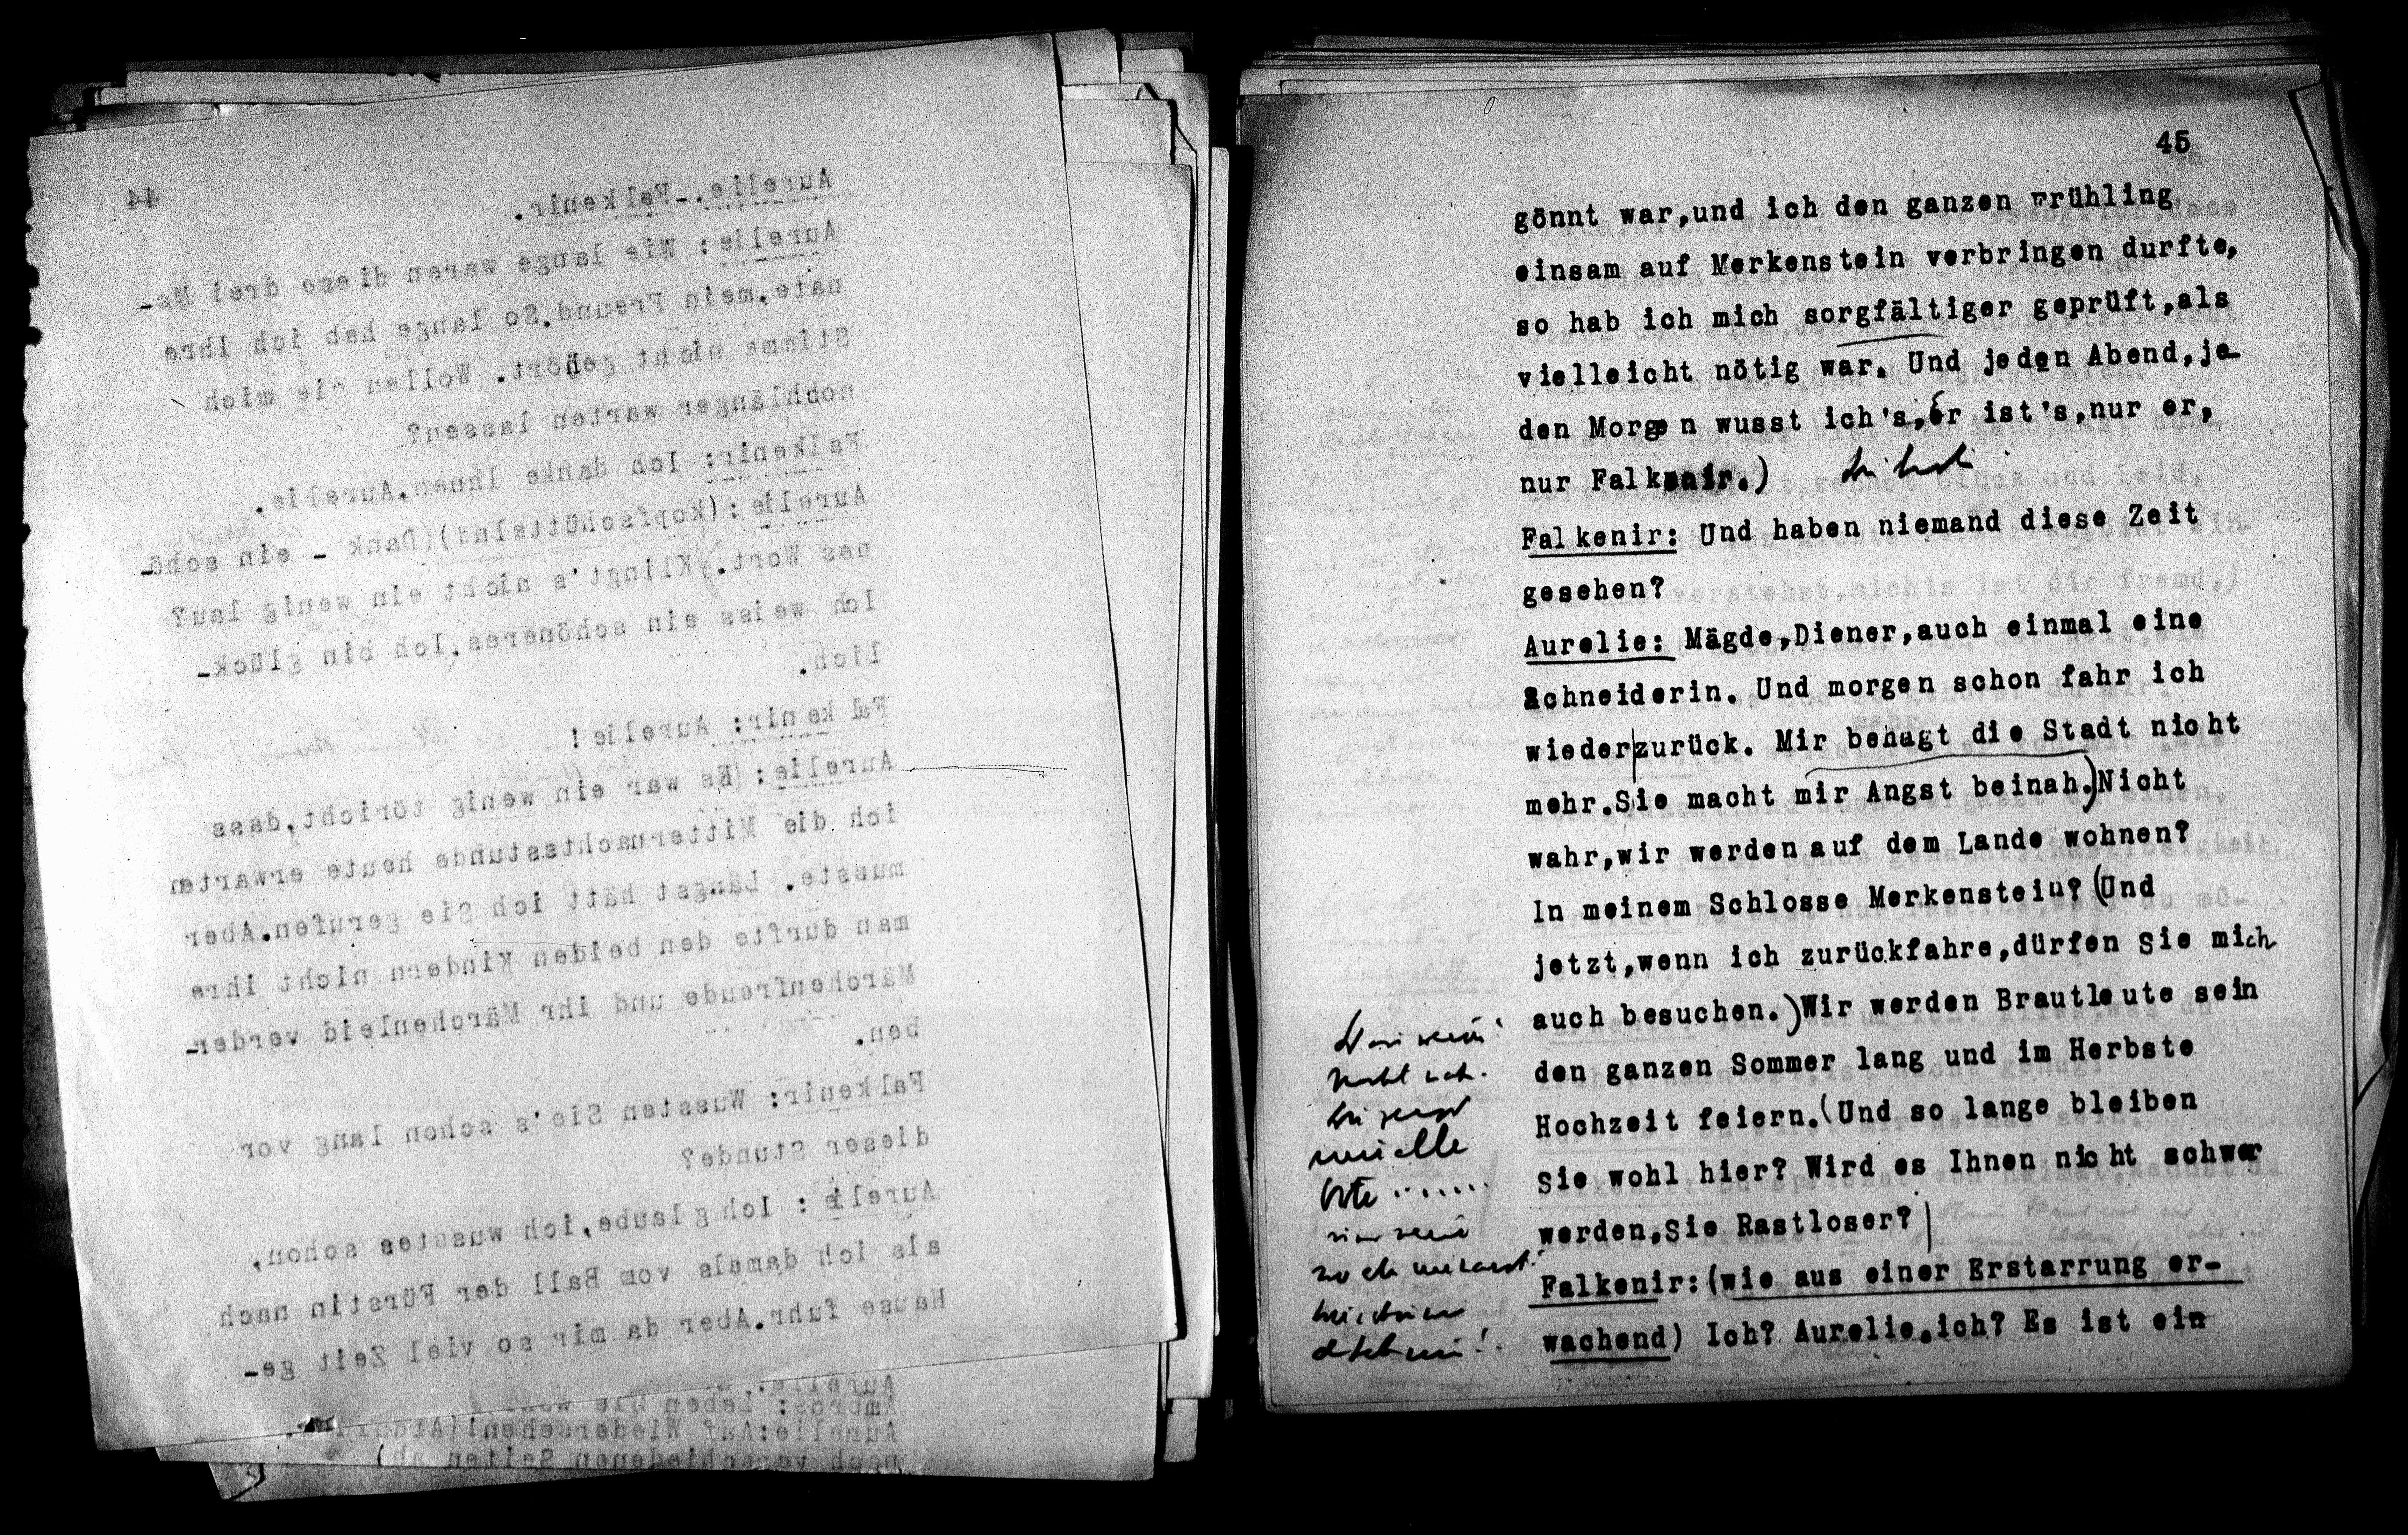 44
Aurelie.-Falkenir.
Aurelie: Wie lange waren diese drei Mo-
nate,mein Freund.So lange hab ich Ihre
Stimme nicht gehört. Wollen Sie mich
nochlänger warten lassen?
Falkenir: Ich danke Ihnen,Aurelie.
Aurelie:(kopfschüttelnd)(Dank - ein schö-
nes Wort.)Klingt's nicht ein wenig lau?
Ich weiss ein schöneres,Ich bin glück-
lich.
Falkenir: Aurelie!
Aurelie:(Es war ein wenig töricht,dass
ich die Mitternachtsstunde heute erwarten
musste. Längst hätt ich Sie gerufen.Aber
man durfte den beiden Kindern nicht ihre
Märchenfreude und ihr Märchenleid verder-
ben.
Falkenir: Wussten Sie's schon lang vor
dieser Stunde?
Aurelie: Ich glaube,ich wusstes schon,
als ich damals vom Ball der Fürstin nach
Hause fuhr.Aber da mir so viel Zeit ge-
Aurelie
Ambros: Leben Sie
Aurelie:Auf Wiedersehen!
nach verschiedenen Seiten ab)
45
gönnt war,und ich den ganzen Frühling
einsam auf Merkenstein verbringen durfte,
so hab ich mich sorgfältiger geprüft,als
vielleicht nötig war. Und jeden Abend,je-
den Morgen wusst ich's,er ist's,nur er,
nur Falkenir.)
Falkenir: Und haben niemand diese Zeit
gesehen?
Aurelie: Mägde,Diener,auch einmal eine
Schneiderin. Und morgen schon fahr ich
wieder|zurück. Mir behagt die Stadt nicht
mehr.Sie macht mir Angst beinah.)Nicht
wahr,wir werden auf dem Lande wohnen?
In meinem Schlosse Merkenstein?(Und
jetzt,wenn ich zurückfahre,dürfen Sie mich
auch besuchen.)Wir werden Brautleute sein
den ganzen Sommer lang und im Herbste
Hochzeit feiern.(Und so lange bleiben
Sie wohl hier? Wird es Ihnen nicht schwer
werden,Sie Rastloser?)
Falkenir:(wie aus einer Erstarrung er-
wachend) Ich? Aurelie.ich? Es ist ein